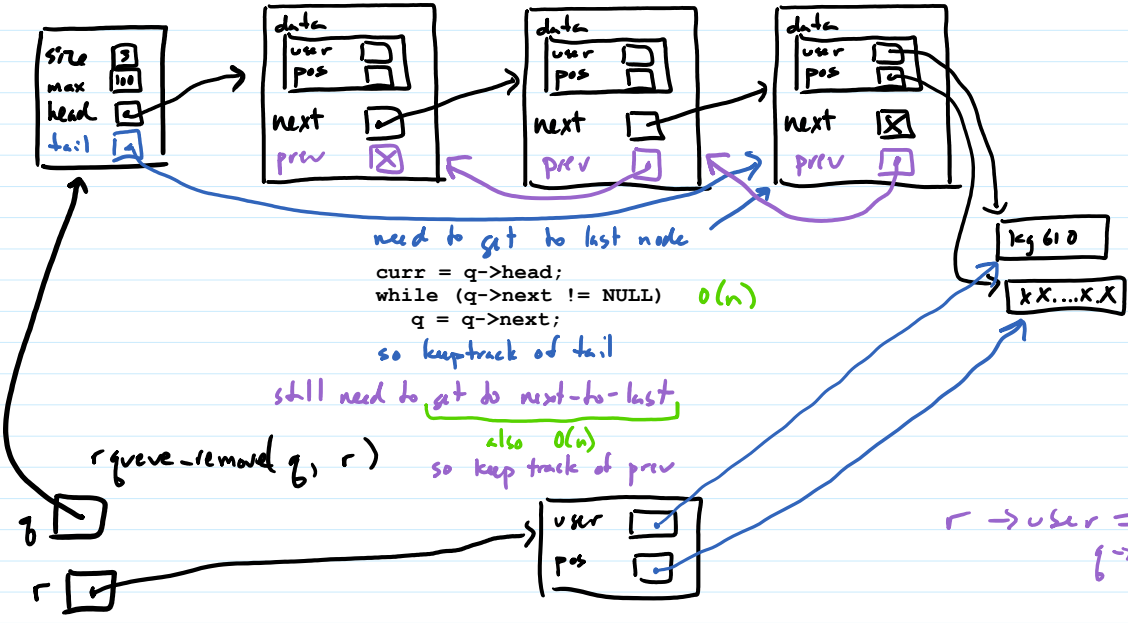 size 3
max 100
head
tail
data
user
pos
next
prev
data
user
pos
next
prev
data
user
pos
next
prev
kg610
XX....X.X
need to get to last node
curr = q->head;
while (q->next != NULL) O(n)
q = q->next;
so keep track of tail
still need to get to next-to-last
also O(n)
so keep track of prev
rqueue_remove( q, r )
q
r
user
pos
r ->user =
q->